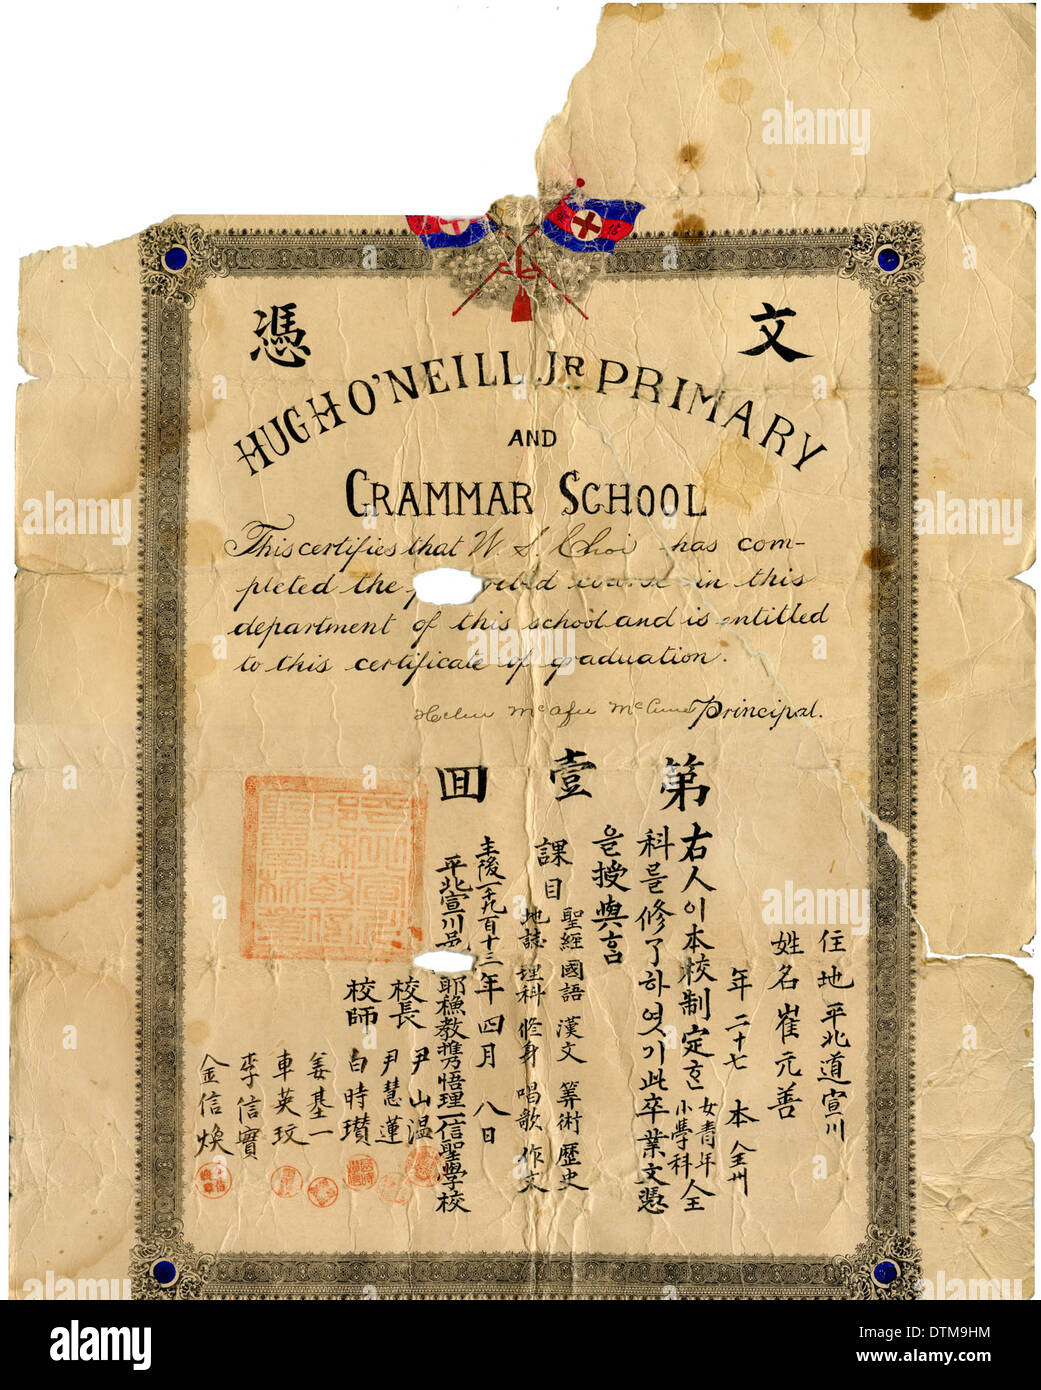 文 憑
HUGH O'NEILL JR PRIMARY
AND
GRAMMAR SCHOOL
This certifies that W. S. Choi has com-
pleted the course in this
department of this school and is entitled
to this certificate of graduation.
Helen McAfee McCune Principal.
第 壹 回
住地 平北道宣川
姓名 崔元善
年 二十七 本 全州
右人이本校制定한 女青年 小學科 全
科를修了하엿기此卒業文憑
을授與喜
課目 聖經 國語 漢文 筭術 歷史
地誌 理科 修身 唱歌 作文
主後一千九百十三年四月八日
平北宣川邑 耶穌教 信聖學校
校長 尹山溫
尹慧蓮
校師 白時瓚
姜基一
車英玟
李信實
金信煥
alamy
alamy stock photo
DTM9HM
www.alamy.com